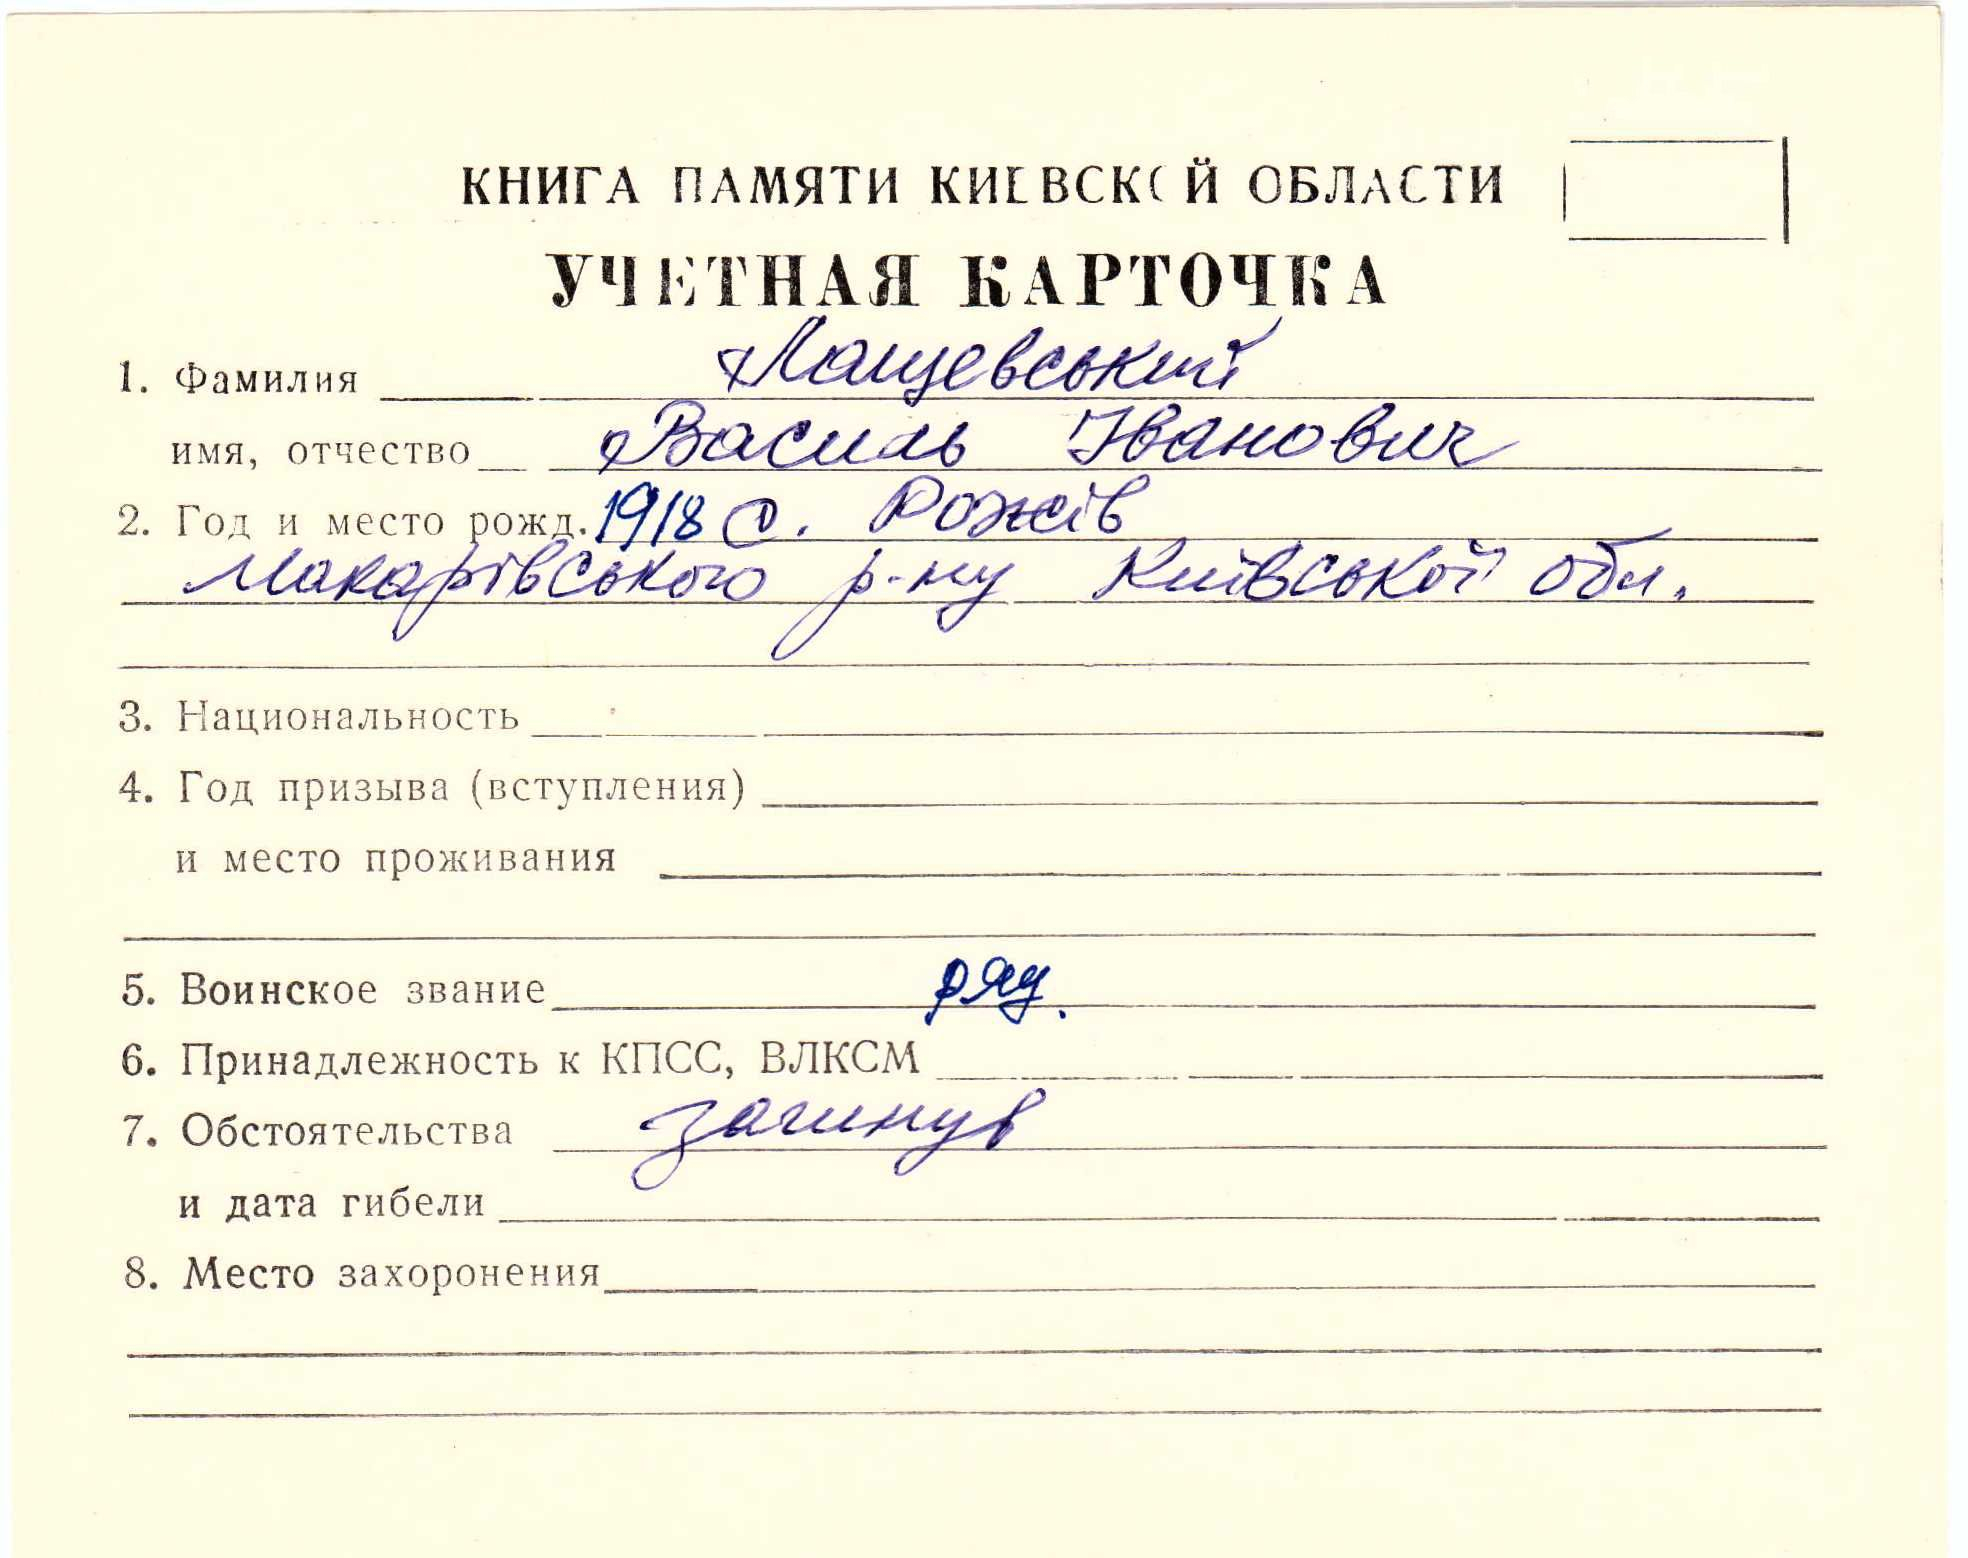 КНИГА ПАМЯТИ КИЕВСКОЙ ОБЛАСТИ
УЧЕТНАЯ КАРТОЧКА
1. Фамилия Лащевський
имя, отчество Василь Іванович
2. Год и место рожд. 1918 с. Рожів
Макарівського р-ну Київської обл.
3. Национальность
4. Год призыва (вступления)
и место проживания
5. Воинское звание ряд.
6. Принадлежность к КПСС, ВЛКСМ
7. Обстоятельства загинув
и дата гибели
8. Место захоронения